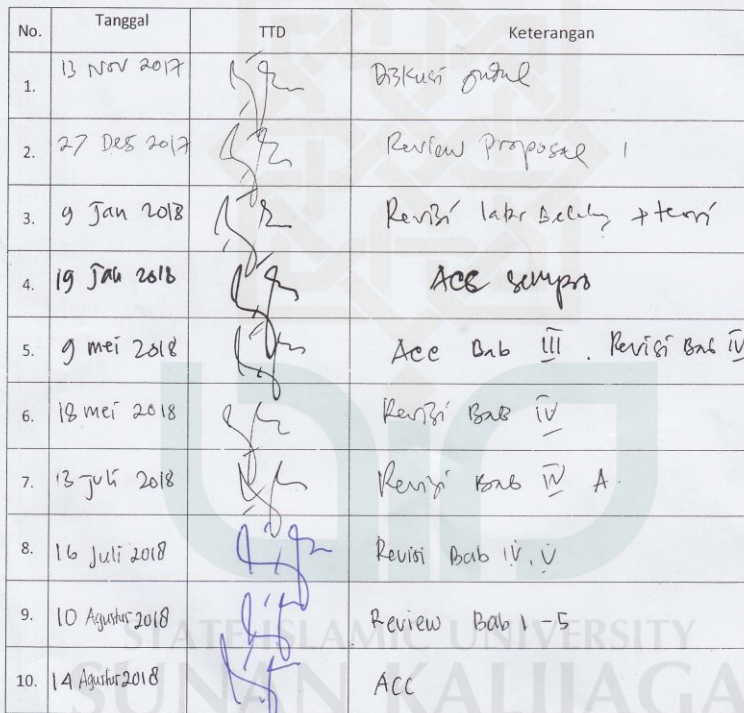 No. Tanggal TTD Keterangan
1. 13 Nov 2017 Diskusi judul
2. 27 Des 2017 Review Proposal 1
3. 9 Jan 2018 Revisi latar + teori
4. 19 Jan 2018 Acc sempro
5. 9 mei 2018 Acc Bab III . Revisi Bab IV
6. 18 mei 2018 Revisi Bab IV
7. 13 Juli 2018 Revisi Bab IV A.
8. 16 Juli 2018 Revisi Bab IV, V
9. 10 Agustus 2018 Review Bab 1-5
STATE ISLAMIC UNIVERSITY
10. 14 Agustus 2018 ACC
SUNAN KALIJAGA